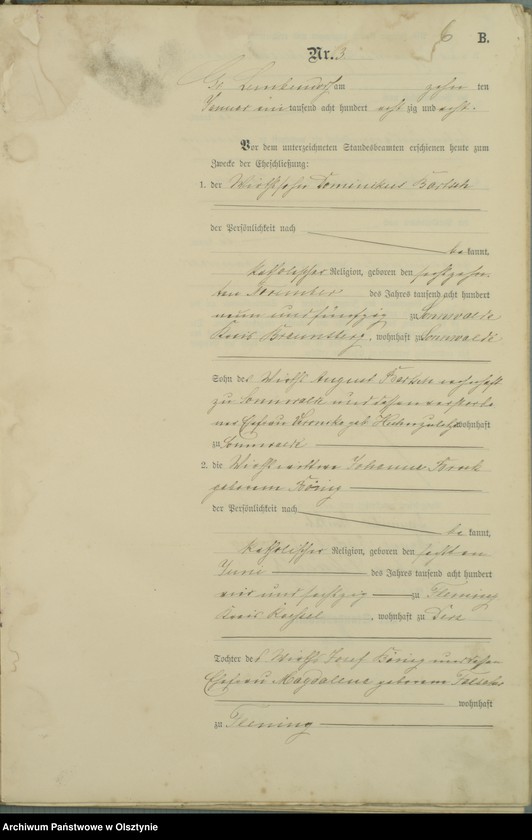 6 B.
Nr. 3
am zehn ten
Januar ein tausend acht hundert acht zig und acht.
Vor dem unterzeichneten Standesbeamten erschienen heute zum
Zwecke der Eheschließung:
1. der Wirthssohn Dominikus Bartsch
der Persönlichkeit nach
be kannt,
katholischer Religion, geboren den sechszehn
ten November des Jahres tausend acht hundert
neun und fünfzig zu Sonnwalde
Kreis Braunsberg, wohnhaft zu Sonnwalde
Sohn des Wirths August Bartsch wohnhaft
zu Sonnwalde und dessen verstorbe
nen Ehefrau geb. wohnhaft
zu Sonnwalde
2. die Wirthswittwe Johanna
geborene König
der Persönlichkeit nach
be kannt,
katholischer Religion, geboren den
Juni des Jahres tausend acht hundert
und sechszig zu Fleming
Kreis Roessel, wohnhaft zu
Tochter des Wirths Josef König und dessen
Ehefrau Magdalena geborene
wohnhaft
zu Fleming
Archiwum Państwowe w Olsztynie